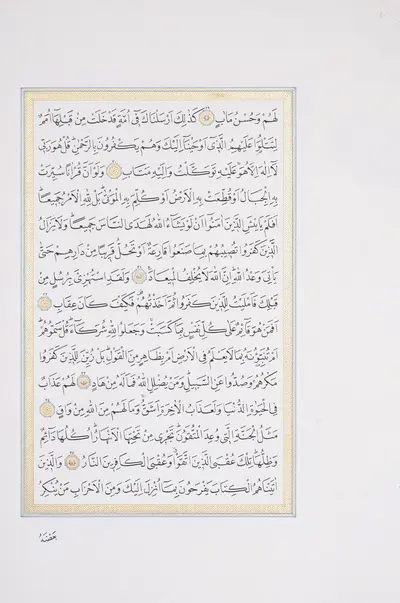 لَهُمْ وَحُسْنُ مَاٰبٍ كَذٰلِكَ اَرْسَلْنَاكَ فٖٓي اُمَّةٍ قَدْ خَلَتْ مِنْ قَبْلِهَٓا اُمَمٌ
لِتَتْلُوَ۬ا عَلَيْهِمُ الَّذٖٓي اَوْحَيْنَٓا اِلَيْكَ وَهُمْ يَكْفُرُونَ بِالرَّحْمٰنِ قُلْ هُوَ رَبّٖي
لَٓا اِلٰهَ اِلَّا هُوَ عَلَيْهِ تَوَكَّلْتُ وَاِلَيْهِ مَتَابِ وَلَوْ اَنَّ قُرْاٰنًا سُيِّرَتْ
بِهِ الْجِبَالُ اَوْ قُطِّعَتْ بِهِ الْاَرْضُ اَوْ كُلِّمَ بِهِ الْمَوْتٰى بَلْ لِلّٰهِ الْاَمْرُ جَمٖيعًا
اَفَلَمْ يَايْـَٔسِ الَّذٖينَ اٰمَنُٓوا اَنْ لَوْ يَشَٓاءُ اللّٰهُ لَهَدَى النَّاسَ جَمٖيعًا وَلَا يَزَالُ
الَّذٖينَ كَفَرُوا تُصٖيبُهُمْ بِمَا صَنَعُوا قَارِعَةٌ اَوْ تَحُلُّ قَرٖيبًا مِنْ دَارِهِمْ حَتّٰى
يَاْتِيَ وَعْدُ اللّٰهِ اِنَّ اللّٰهَ لَا يُخْلِفُ الْمٖيعَادَ وَلَقَدِ اسْتُهْزِئَ بِرُسُلٍ مِنْ
قَبْلِكَ فَاَمْلَيْتُ لِلَّذٖينَ كَفَرُوا ثُمَّ اَخَذْتُهُمْ فَكَيْفَ كَانَ عِقَابِ
اَفَمَنْ هُوَ قَٓائِمٌ عَلٰى كُلِّ نَفْسٍ بِمَا كَسَبَتْ وَجَعَلُوا لِلّٰهِ شُرَكَٓاءَ قُلْ سَمُّوهُمْ
اَمْ تُنَبِّؤُ۫نَهُ بِمَا لَا يَعْلَمُ فِي الْاَرْضِ اَمْ بِظَاهِرٍ مِنَ الْقَوْلِ بَلْ زُيِّنَ لِلَّذٖينَ كَفَرُوا
مَكْرُهُمْ وَصُدُّوا عَنِ السَّبٖيلِ وَمَنْ يُضْلِلِ اللّٰهُ فَمَا لَهُ مِنْ هَادٍ لَهُمْ عَذَابٌ
فِي الْحَيٰوةِ الدُّنْيَا وَلَعَذَابُ الْاٰخِرَةِ اَشَقُّ وَمَا لَهُمْ مِنَ اللّٰهِ مِنْ وَاقٍ
مَثَلُ الْجَنَّةِ الَّتٖي وُعِدَ الْمُتَّقُونَ تَجْرٖي مِنْ تَحْتِهَا الْاَنْهَارُ اُكُلُهَا دَٓائِمٌ
وَظِلُّهَا تِلْكَ عُقْبَى الَّذٖينَ اتَّقَوْا وَعُقْبَى الْكَافِرٖينَ النَّارُ وَالَّذٖينَ
اٰتَيْنَاهُمُ الْكِتَابَ يَفْرَحُونَ بِمَٓا اُنْزِلَ اِلَيْكَ وَمِنَ الْاَحْزَابِ مَنْ يُنْكِرُ
بَعْضَهُ